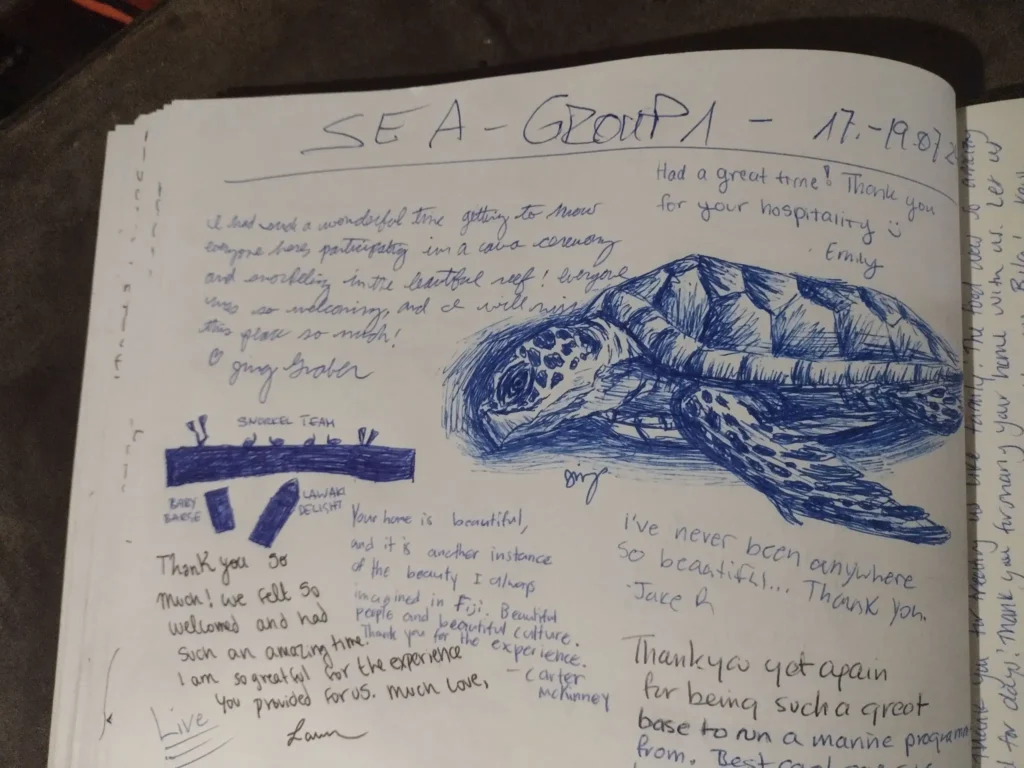 SEA - GROUP1 - 17.-19.07.2
Had a great time! Thank you
for your hospitality
Emily
I had such a wonderful time getting to know
everyone here, participating in a cava ceremony
and snorkeling in the beautiful reef! Everyone
was so welcoming, and I will miss
this place so much!
Ginny Graber
SNORKEL TEAM
BABY
BARGE
LAWAKI
DELIGHT
Your home is beautiful,
and it is another instance
of the beauty I always
imagined in Fiji. Beautiful
people and beautiful culture.
Thank you for the experience.
- Carter
McKinney
Thank you so
much! We felt so
welcomed and had
such an amazing time!
I am so grateful for the experience
you provided for us. Much Love,
Live
I've never been anywhere
so beautiful... Thank you.
- Jake R
Thankyou yet again
for being such a great
base to run a marine programme
from. Best
thank you for treating us like family. The food was so amazing
thank you for making your home with us. Let us